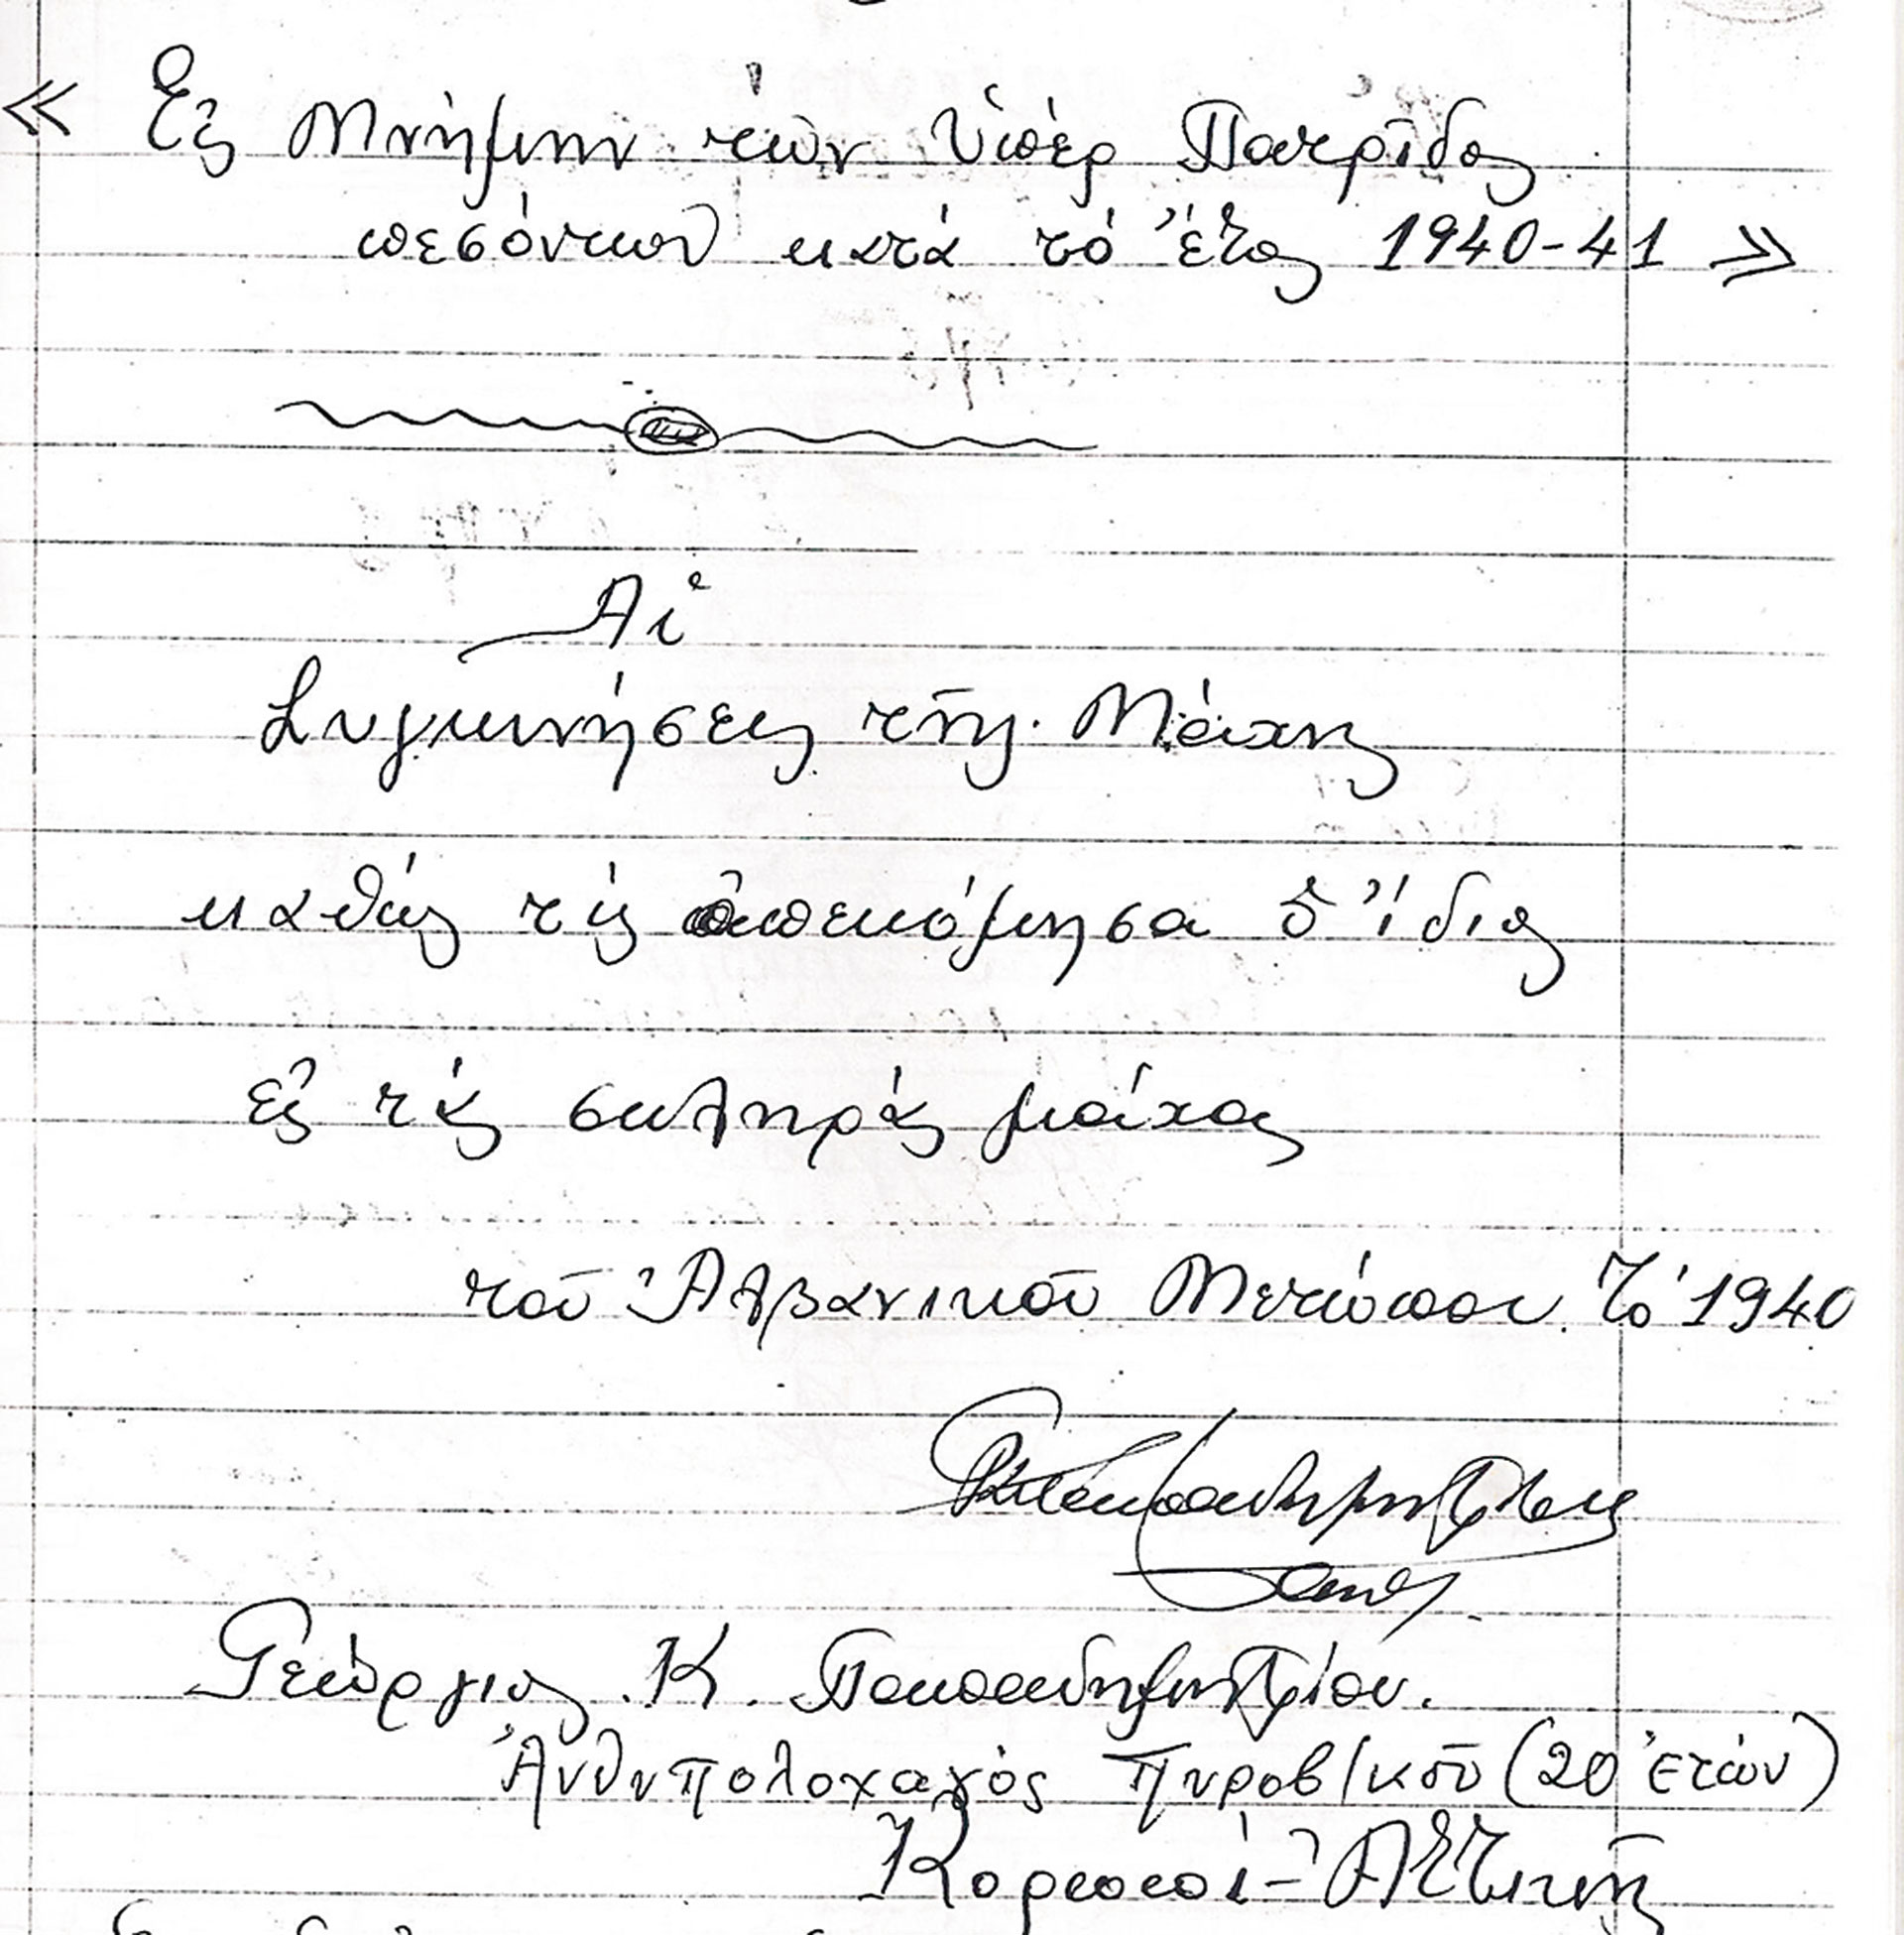 « Εἰς Μνήμην τῶν Ὑπέρ Πατρίδος
πεσόντων κατά τό ἔτος 1940-41 »
Αἱ
Συγκινήσεις τῆς Μάχης
καθώς τίς ἀπεκόμησα ὁ ἴδιος
εἰς τάς σκληράς μάχας
τοῦ Ἀλβανικοῦ Μετώπου. Τό 1940
Γεώργιος .Κ. Παπαδημητρίου.
Ἀνθυπολοχαγός Πυροβ/κοῦ (20 ἐτῶν)
Κορωπί - Ἀττικῆς